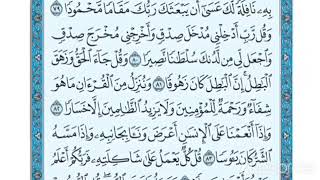 بِهِۦ نَافِلَةً لَّكَ عَسَىٰٓ أَن يَبْعَثَكَ رَبُّكَ مَقَامًا مَّحْمُودًا ٧٩
وَقُل رَّبِّ أَدْخِلْنِي مُدْخَلَ صِدْقٍ وَأَخْرِجْنِي مُخْرَجَ صِدْقٍ
وَٱجْعَل لِّي مِن لَّدُنكَ سُلْطَٰنًا نَّصِيرًا ٨٠ وَقُلْ جَآءَ ٱلْحَقُّ وَزَهَقَ
ٱلْبَٰطِلُ إِنَّ ٱلْبَٰطِلَ كَانَ زَهُوقًا ٨١ وَنُنَزِّلُ مِنَ ٱلْقُرْءَانِ مَا هُوَ
شِفَآءٌ وَرَحْمَةٌ لِّلْمُؤْمِنِينَ وَلَا يَزِيدُ ٱلظَّٰلِمِينَ إِلَّا خَسَارًا ٨٢
وَإِذَآ أَنْعَمْنَا عَلَى ٱلْإِنسَٰنِ أَعْرَضَ وَنَـَٔا بِجَانِبِهِۦ وَإِذَا مَسَّهُ
ٱلشَّرُّ كَانَ يَـُٔوسًا ٨٣ قُلْ كُلٌّ يَعْمَلُ عَلَىٰ شَاكِلَتِهِۦ فَرَبُّكُمْ أَعْلَمُ